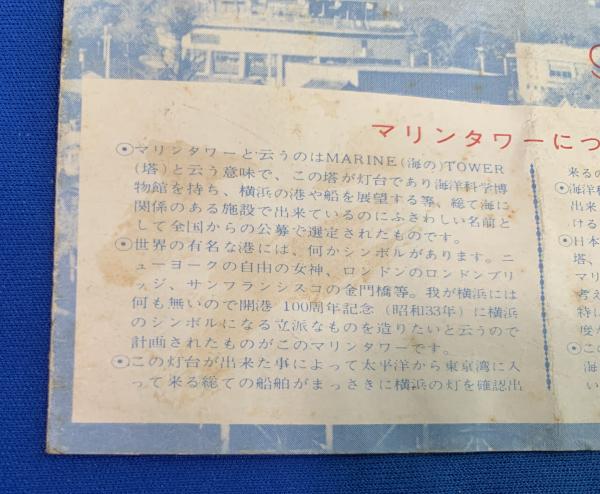 マリンタワーにつ
⦿マリンタワーと云うのはMARINE(海の)TOWER
(塔)と云う意味で、この塔が灯台であり海洋科学博
物館を持ち、横浜の港や船を展望する等、総て海に
関係のある施設で出来ているのにふさわしい名前と
して全国からの公募で選定されたものです。
⦿世界の有名な港には、何かシンボルがあります。ニ
ューヨークの自由の女神、ロンドンのロンドンブリ
ッジ、サンフランシスコの金門橋等。我が横浜には
何も無いので開港 100周年記念 (昭和33年) に横浜
のシンボルになる立派なものを造りたいと云うので
計画されたものがこのマリンタワーです。
⦿この灯台が出来た事によって太平洋から東京湾に入
って来る総ての船舶がまっさきに横浜の灯を確認出
来るの
⦿海洋科
出来
ける
⦿日本
塔、
マリ
考え
特に
度が
⦿この
海
い